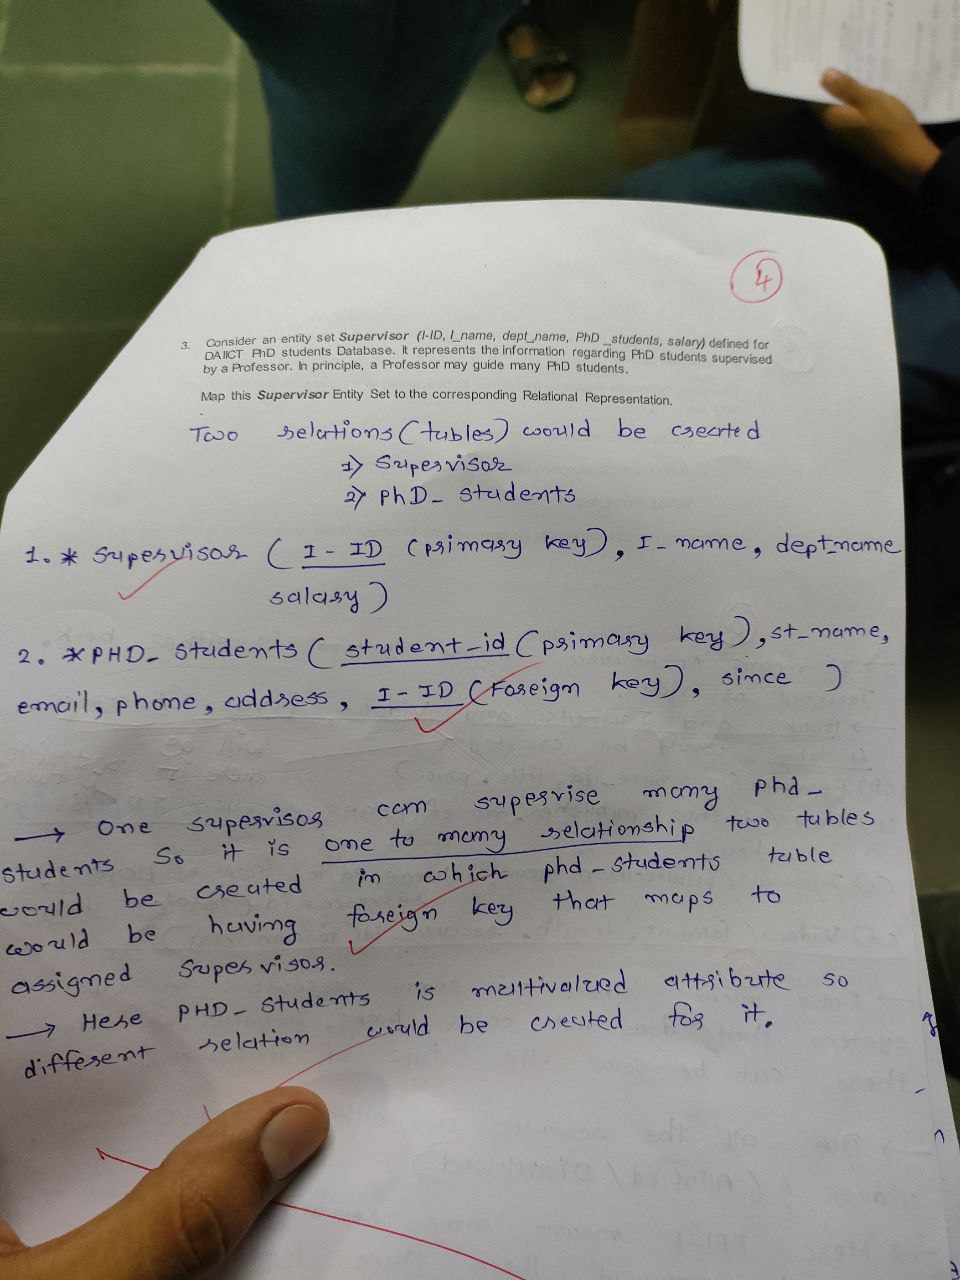 4
3. Consider an entity set Supervisor (I-ID, I_name, dept_name, PhD_students, salary) defined for
DAIICT PhD students Database. It represents the information regarding PhD students supervised
by a Professor. In principle, a Professor may guide many PhD students.
Map this Supervisor Entity Set to the corresponding Relational Representation.
Two relations (tables) would be created
1) Supervisor
2) PhD_ students
1. * Supervisor ( I - ID (primary key), I_ name, dept_name
salary )
2. * PHD_ students ( student_id (primary key), st_name,
email, phone, address, I - ID (Foreign key), since )
→ One supervisor can supervise many phd_
students So it is one to many relationship two tables
would be created in which phd_students table
would be having foreign key that maps to
assigned supervisor.
→ Here PHD_ students is multivalued attribute so
different relation would be created for it.